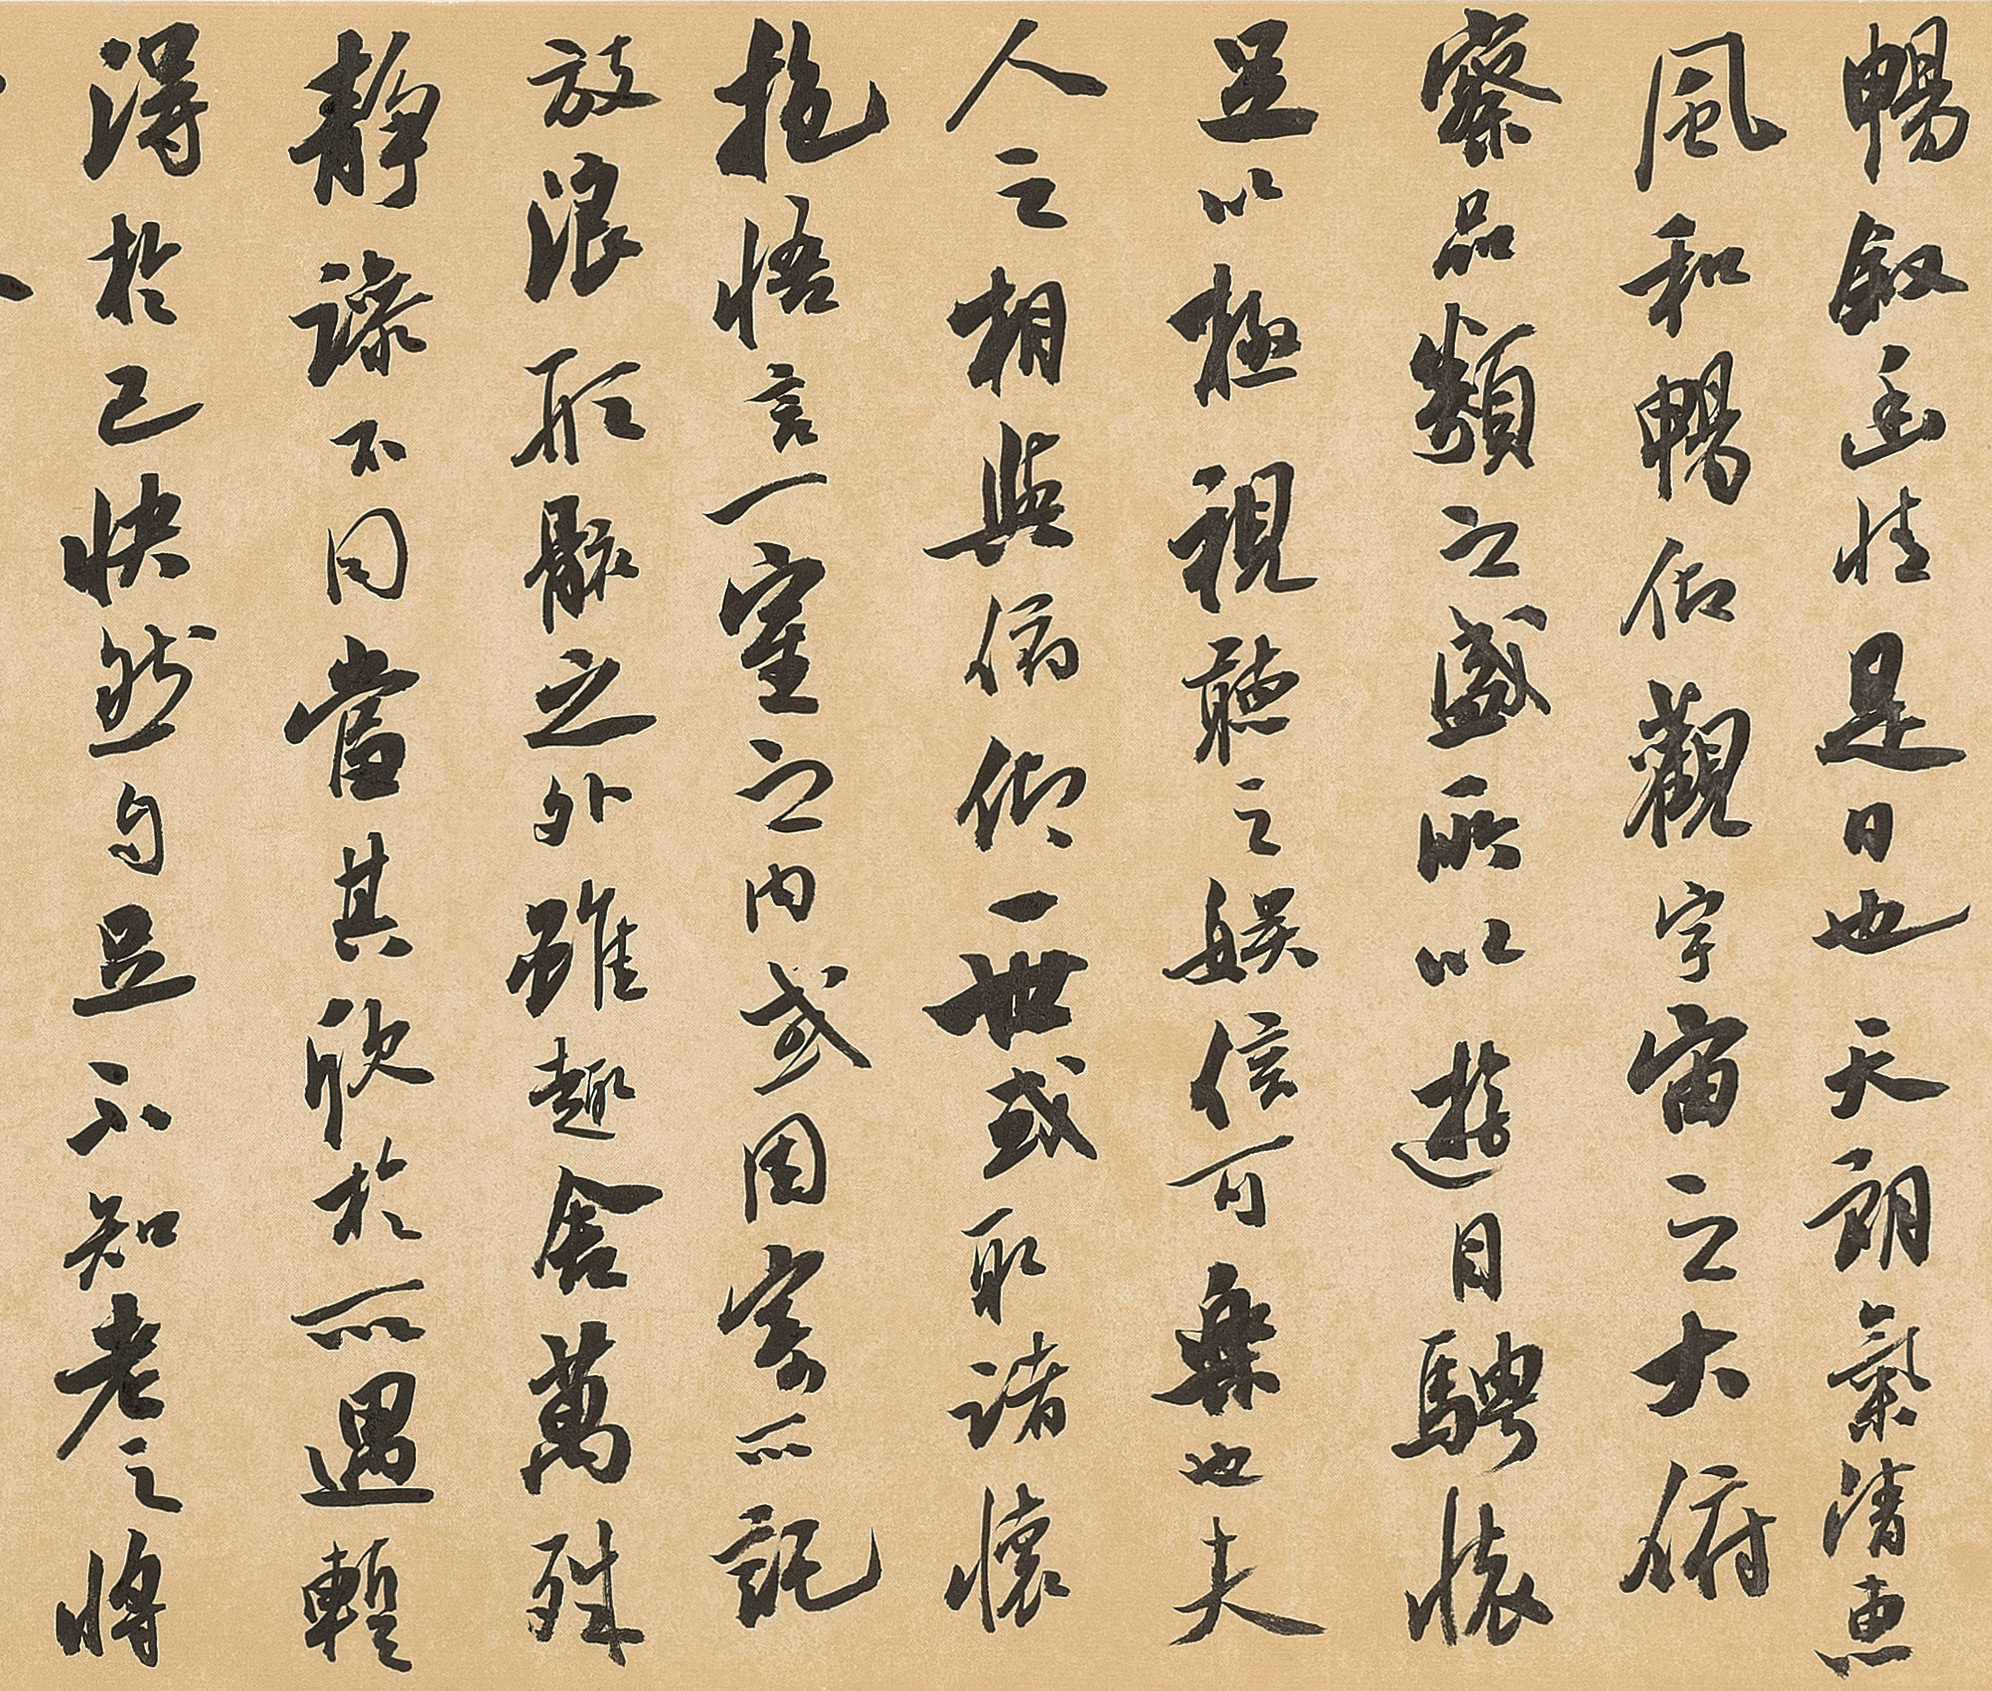 暢叙幽情是日也天朗氣清惠
風和暢仰觀宇宙之大俯
察品類之盛所以遊目騁懷
足以極視聽之娛信可樂也夫
人之相與俯仰一世或取諸懷
抱悟言一室之内或因寄所託
放浪形骸之外雖趣舍萬殊
靜躁不同當其欣於所遇暫
得於己快然自足不知老之將